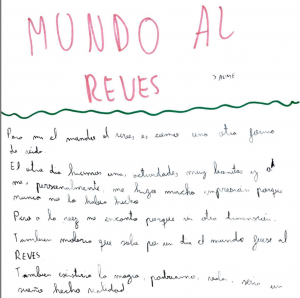 MUNDO AL
REVES
JAUME
Para mi el mundo al reves es como una otra forma
de vida.
El otro dia hicimos unas actividades muy bonitas y a
mi, personalmente, me hizo mucha impresion porque
nunca no lo habia hecho
Pero a la vez me encanto porque un otra dimension.
Tambien molaria que solo por un dia el mundo fuese al
REVES.
Tambien existiria la magia, podriamos, seria un
sueño hecho realidad.